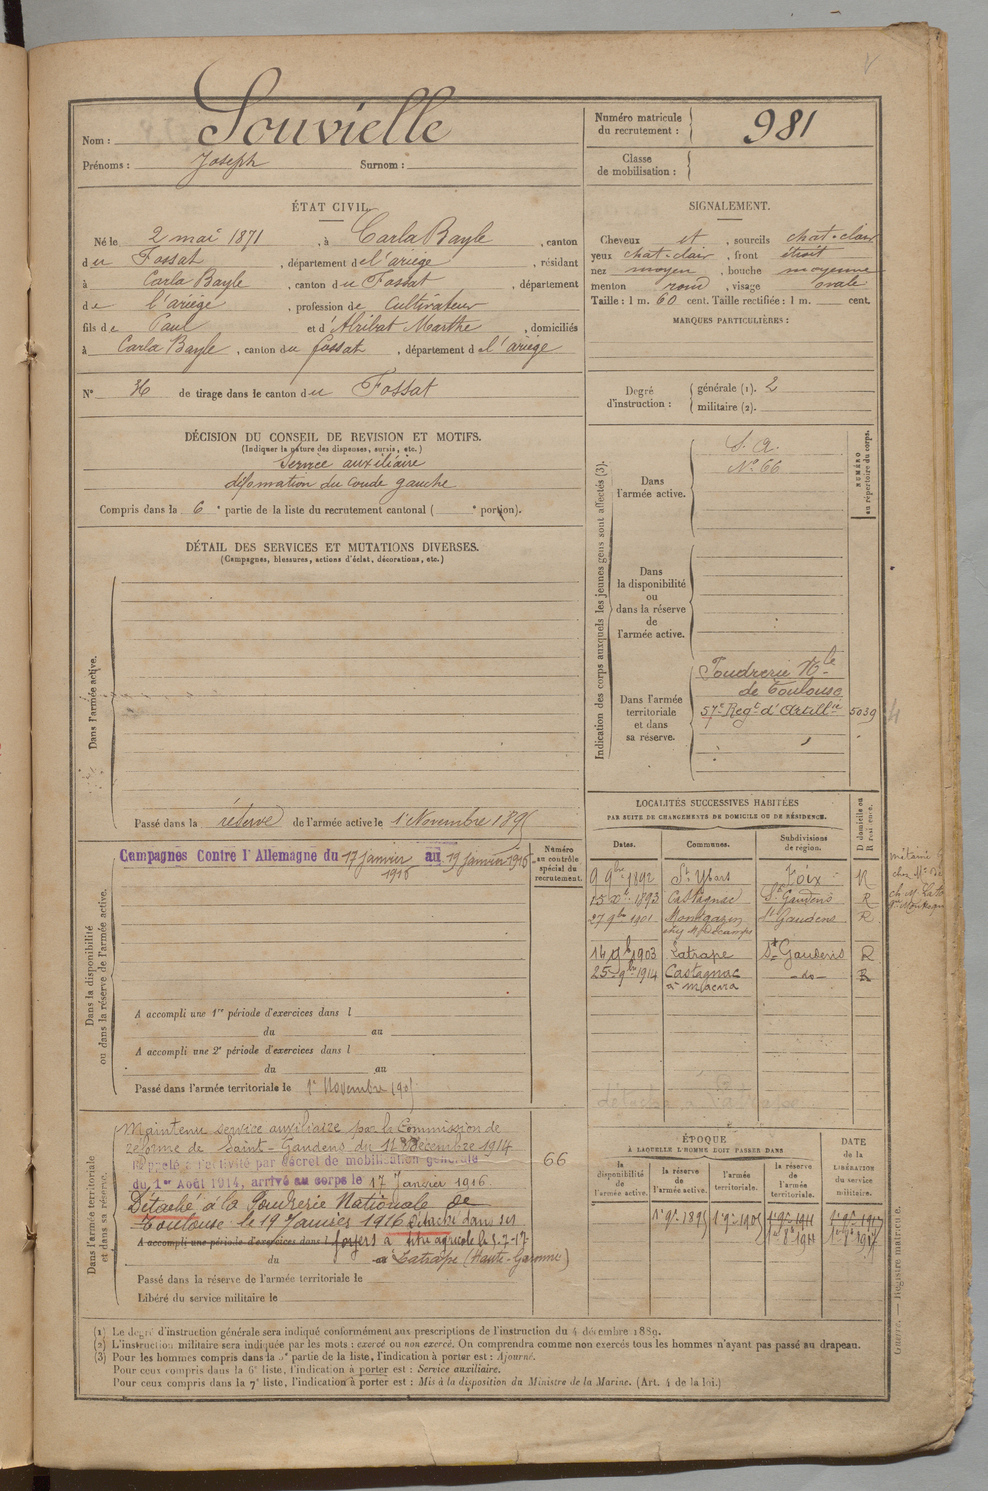 Nom : Souvielle
Prénoms : Joseph Surnom :
Numéro matricule
du recrutement : 981
Classe
de mobilisation :
ÉTAT CIVIL.
Né le 2 mai 1871, à Carla Bayle, canton
du Fossat, département de l'ariège, résidant
à Carla Bayle, canton du Fossat, département
de l'ariège, profession de Cultivateur
fils de Paul et d'Abribat Marthe, domiciliés
à Carla Bayle, canton du fossat, département de l'ariège
N° 36 de tirage dans le canton du Fossat
SIGNALEMENT.
Cheveux et, sourcils chat-clair
yeux chat-clair, front étroit
nez moyen, bouche moyenne
menton rond, visage ovale
Taille : 1 m. 60 cent. Taille rectifiée : 1 m. cent.
MARQUES PARTICULIÈRES :
Degré
d'instruction :
générale (1). 2
militaire (2).
DÉCISION DU CONSEIL DE REVISION ET MOTIFS.
(Indiquer la nature des dispenses, sursis, etc.)
Service auxiliaire
déformation du coude gauche
Compris dans la 6e partie de la liste du recrutement cantonal ( e portion).
DÉTAIL DES SERVICES ET MUTATIONS DIVERSES.
(Campagnes, blessures, actions d'éclat, décorations, etc.)
Dans l'armée active.
Passé dans la réserve de l'armée active le 1er Novembre 1895
Indication des corps auxquels les jeunes gens sont affectés (3).
NUMÉRO
au répertoire du corps.
Dans
l'armée active.
S. A.
N° 66
Dans
la disponibilité
ou
dans la réserve
de
l'armée active.
Dans l'armée
territoriale
et dans
sa réserve.
Poudrerie Nle
de Toulouse
57e Regt d'Artillie 5039
Dans la disponibilité
ou dans la réserve de l'armée active.
Campagnes Contre l'Allemagne du 17 janvier 1916 au 19 janvier 1916
Numéro
au contrôle
spécial du
recrutement.
A accompli une 1re période d'exercices dans l
du au
A accompli une 2e période d'exercices dans l
du au
Passé dans l'armée territoriale le 1er Novembre 1905
LOCALITÉS SUCCESSIVES HABITÉES
PAR SUITE DE CHANGEMENTS DE DOMICILE OU DE RÉSIDENCE.
Dates. Communes. Subdivisions
de région. D domicile ou
R résidence.
9 9bre 1892 St Ybars Foix R
15 Xbre 1893 Castagnac St Gaudens R
27 9bre 1901 Montgazin St Gaudens R
chez Mr Decamps
14 9bre 1903 Latrape St Gaudens R
25 9bre 1914 Castagnac -do- R
Dans l'armée territoriale
et dans sa réserve.
Maintenu service auxiliaire par la Commission de
réforme de Saint-Gaudens du 11 Décembre 1914
Rappelé à l'activité par décret de mobilisation générale
du 1er Août 1914, arrivé au corps le 17 Janvier 1916.
Détaché à la Poudrerie Nationale de
Toulouse le 19 Janvier 1916 Détaché dans ses
A accompli une période d'exercices dans l foyers à titre agricole le 5-7-17
du à Latrape (Haute-Garonne)
66
Passé dans la réserve de l'armée territoriale le
Libéré du service militaire le
ÉPOQUE
À LAQUELLE L'HOMME DOIT PASSER DANS
la
disponibilité
de
l'armée active.
la réserve
de
l'armée active.
l'armée
territoriale.
la réserve
de
l'armée
territoriale.
DATE
de la
LIBÉRATION
du service
militaire.
1er 9bre 1895 1er 9bre 1905 1er 9bre 1911 1er 9bre 1917
(1) Le degré d'instruction générale sera indiqué conformément aux prescriptions de l'instruction du 4 décembre 1889.
(2) L'instruction militaire sera indiquée par les mots : exercé ou non exercé. On comprendra comme non exercés tous les hommes n'ayant pas passé au drapeau.
(3) Pour les hommes compris dans la 5e partie de la liste, l'indication à porter est : Ajourné.
Pour ceux compris dans la 6e liste, l'indication à porter est : Service auxiliaire.
Pour ceux compris dans la 7e liste, l'indication à porter est : Mis à la disposition du Ministre de la Marine. (Art. 4 de la loi.)
Guerre. — Registre matricule.